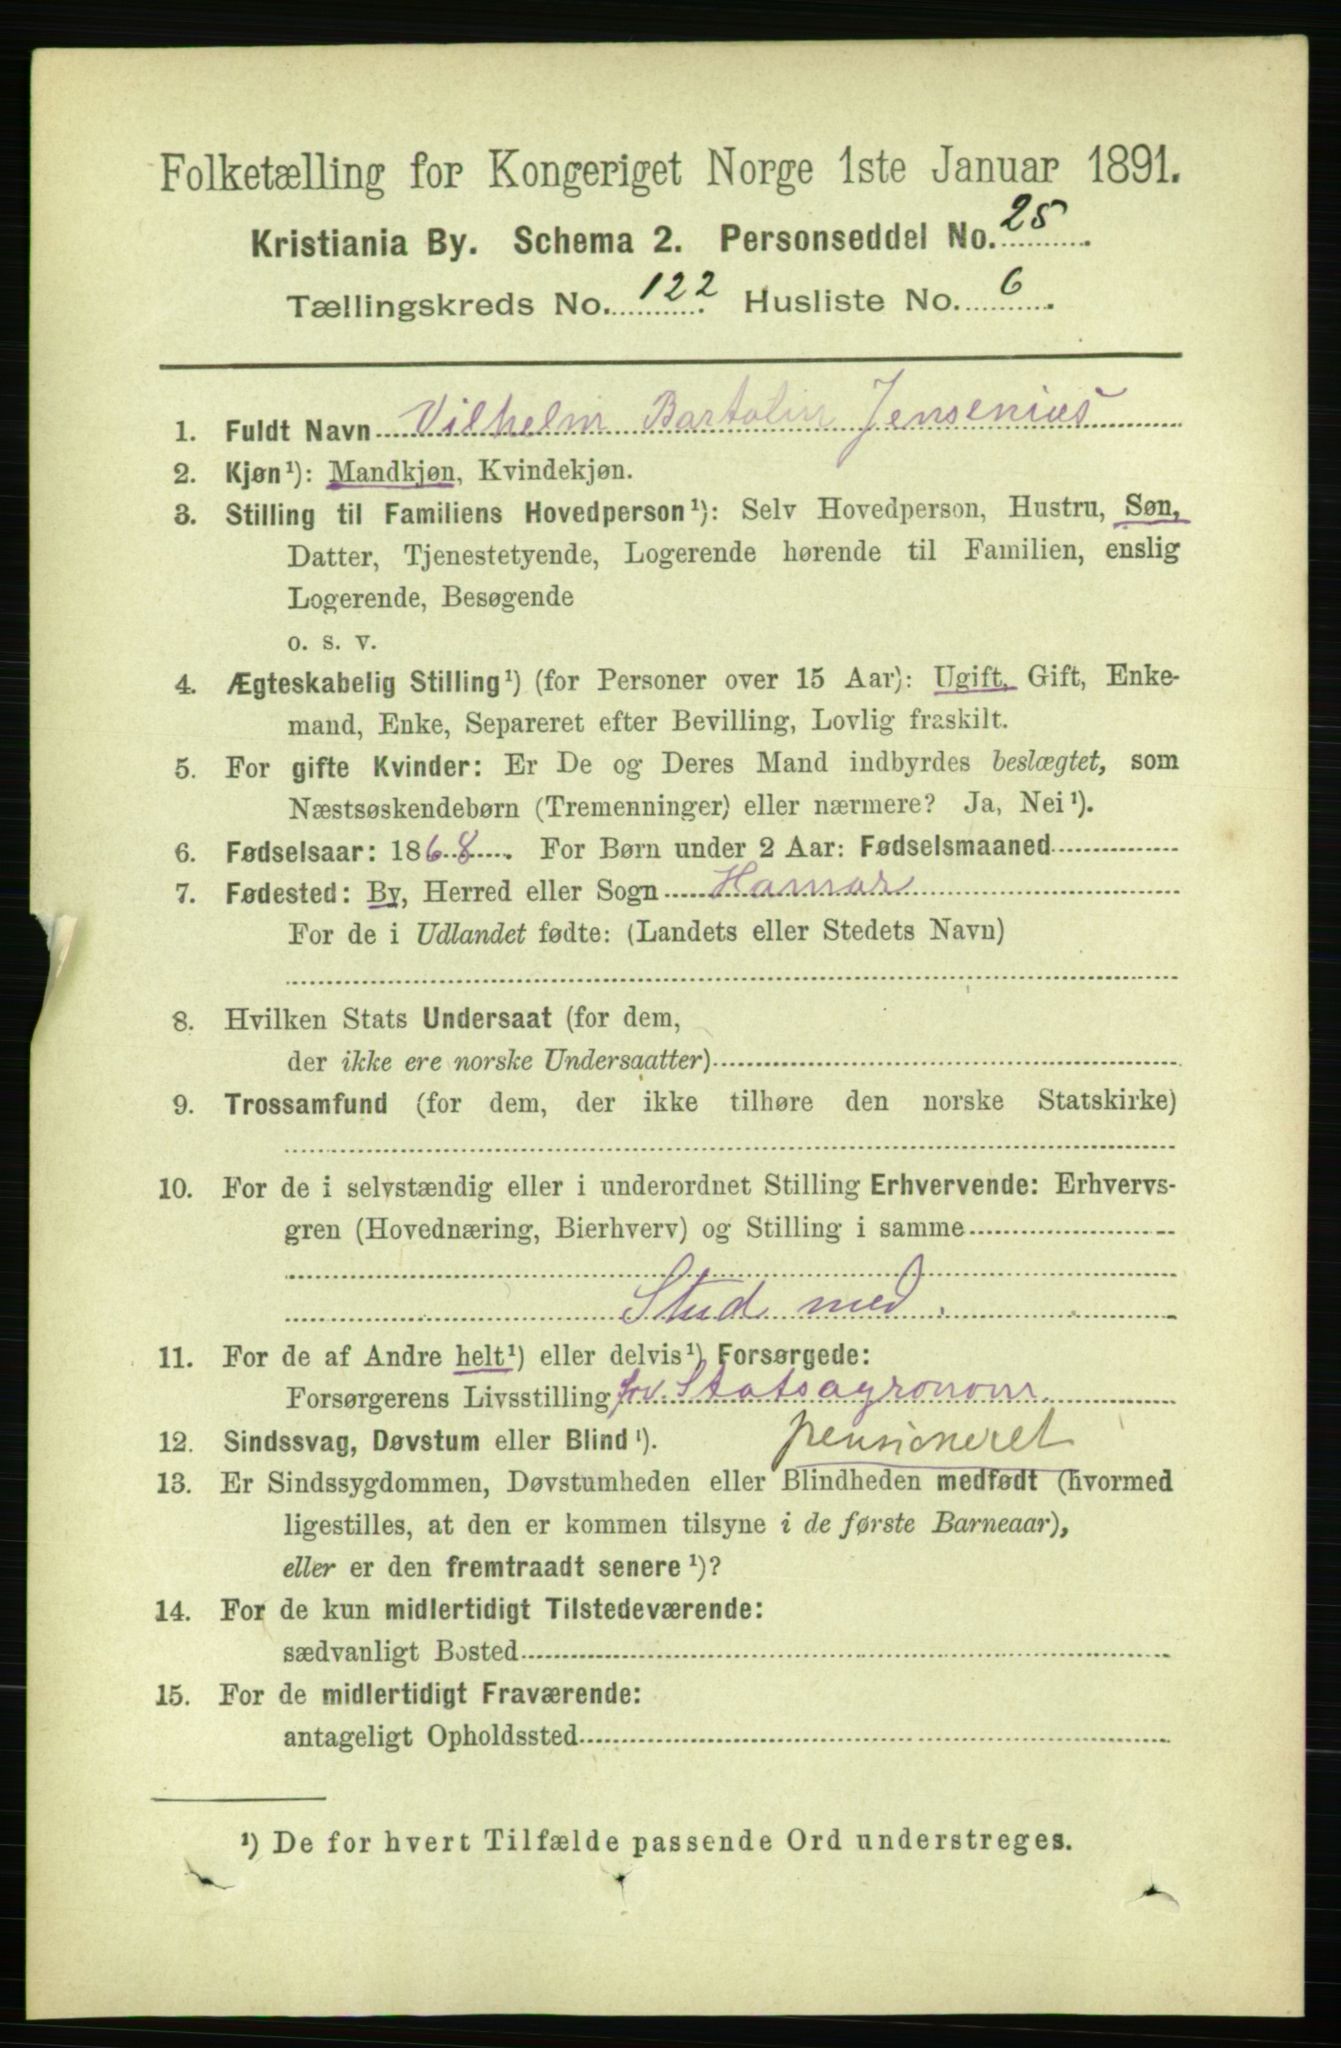 Folketælling for Kongeriget Norge 1ste Januar 1891.
Kristiania By. Schema 2. Personseddel No. 25
Tællingskreds No. 122 Husliste No. 6
1. Fuldt Navn Vilhelm Bartolin Jensenius
2. Kjøn¹): Mandkjøn, Kvindekjøn.
3. Stilling til Familiens Hovedperson¹): Selv Hovedperson, Hustru, Søn,
Datter, Tjenestetyende, Logerende hørende til Familien, enslig
Logerende, Besøgende
o. s. v.
4. Ægteskabelig Stilling¹) (for Personer over 15 Aar): Ugift, Gift, Enke-
mand, Enke, Separeret efter Bevilling, Lovlig fraskilt.
5. For gifte Kvinder: Er De og Deres Mand indbyrdes beslægtet, som
Næstsøskendebørn (Tremenninger) eller nærmere? Ja, Nei¹).
6. Fødselsaar: 1868. For Børn under 2 Aar: Fødselsmaaned
7. Fødested: By, Herred eller Sogn Hamar
For de i Udlandet fødte: (Landets eller Stedets Navn)
8. Hvilken Stats Undersaat (for dem,
der ikke ere norske Undersaatter)
9. Trossamfund (for dem, der ikke tilhøre den norske Statskirke)
10. For de i selvstændig eller i underordnet Stilling Erhvervende: Erhvervs-
gren (Hovednæring, Bierhverv) og Stilling i samme
Stud med.
11. For de af Andre helt¹) eller delvis¹) Forsørgede:
Forsørgerens Livsstilling frv. Statsagronom
pensioneret
12. Sindssvag, Døvstum eller Blind¹).
13. Er Sindssygdommen, Døvstumheden eller Blindheden medfødt (hvormed
ligestilles, at den er kommen tilsyne i de første Barneaar),
eller er den fremtraadt senere¹)?
14. For de kun midlertidigt Tilstedeværende:
sædvanligt Bosted
15. For de midlertidigt Fraværende:
antageligt Opholdssted
¹) De for hvert Tilfælde passende Ord understreges.